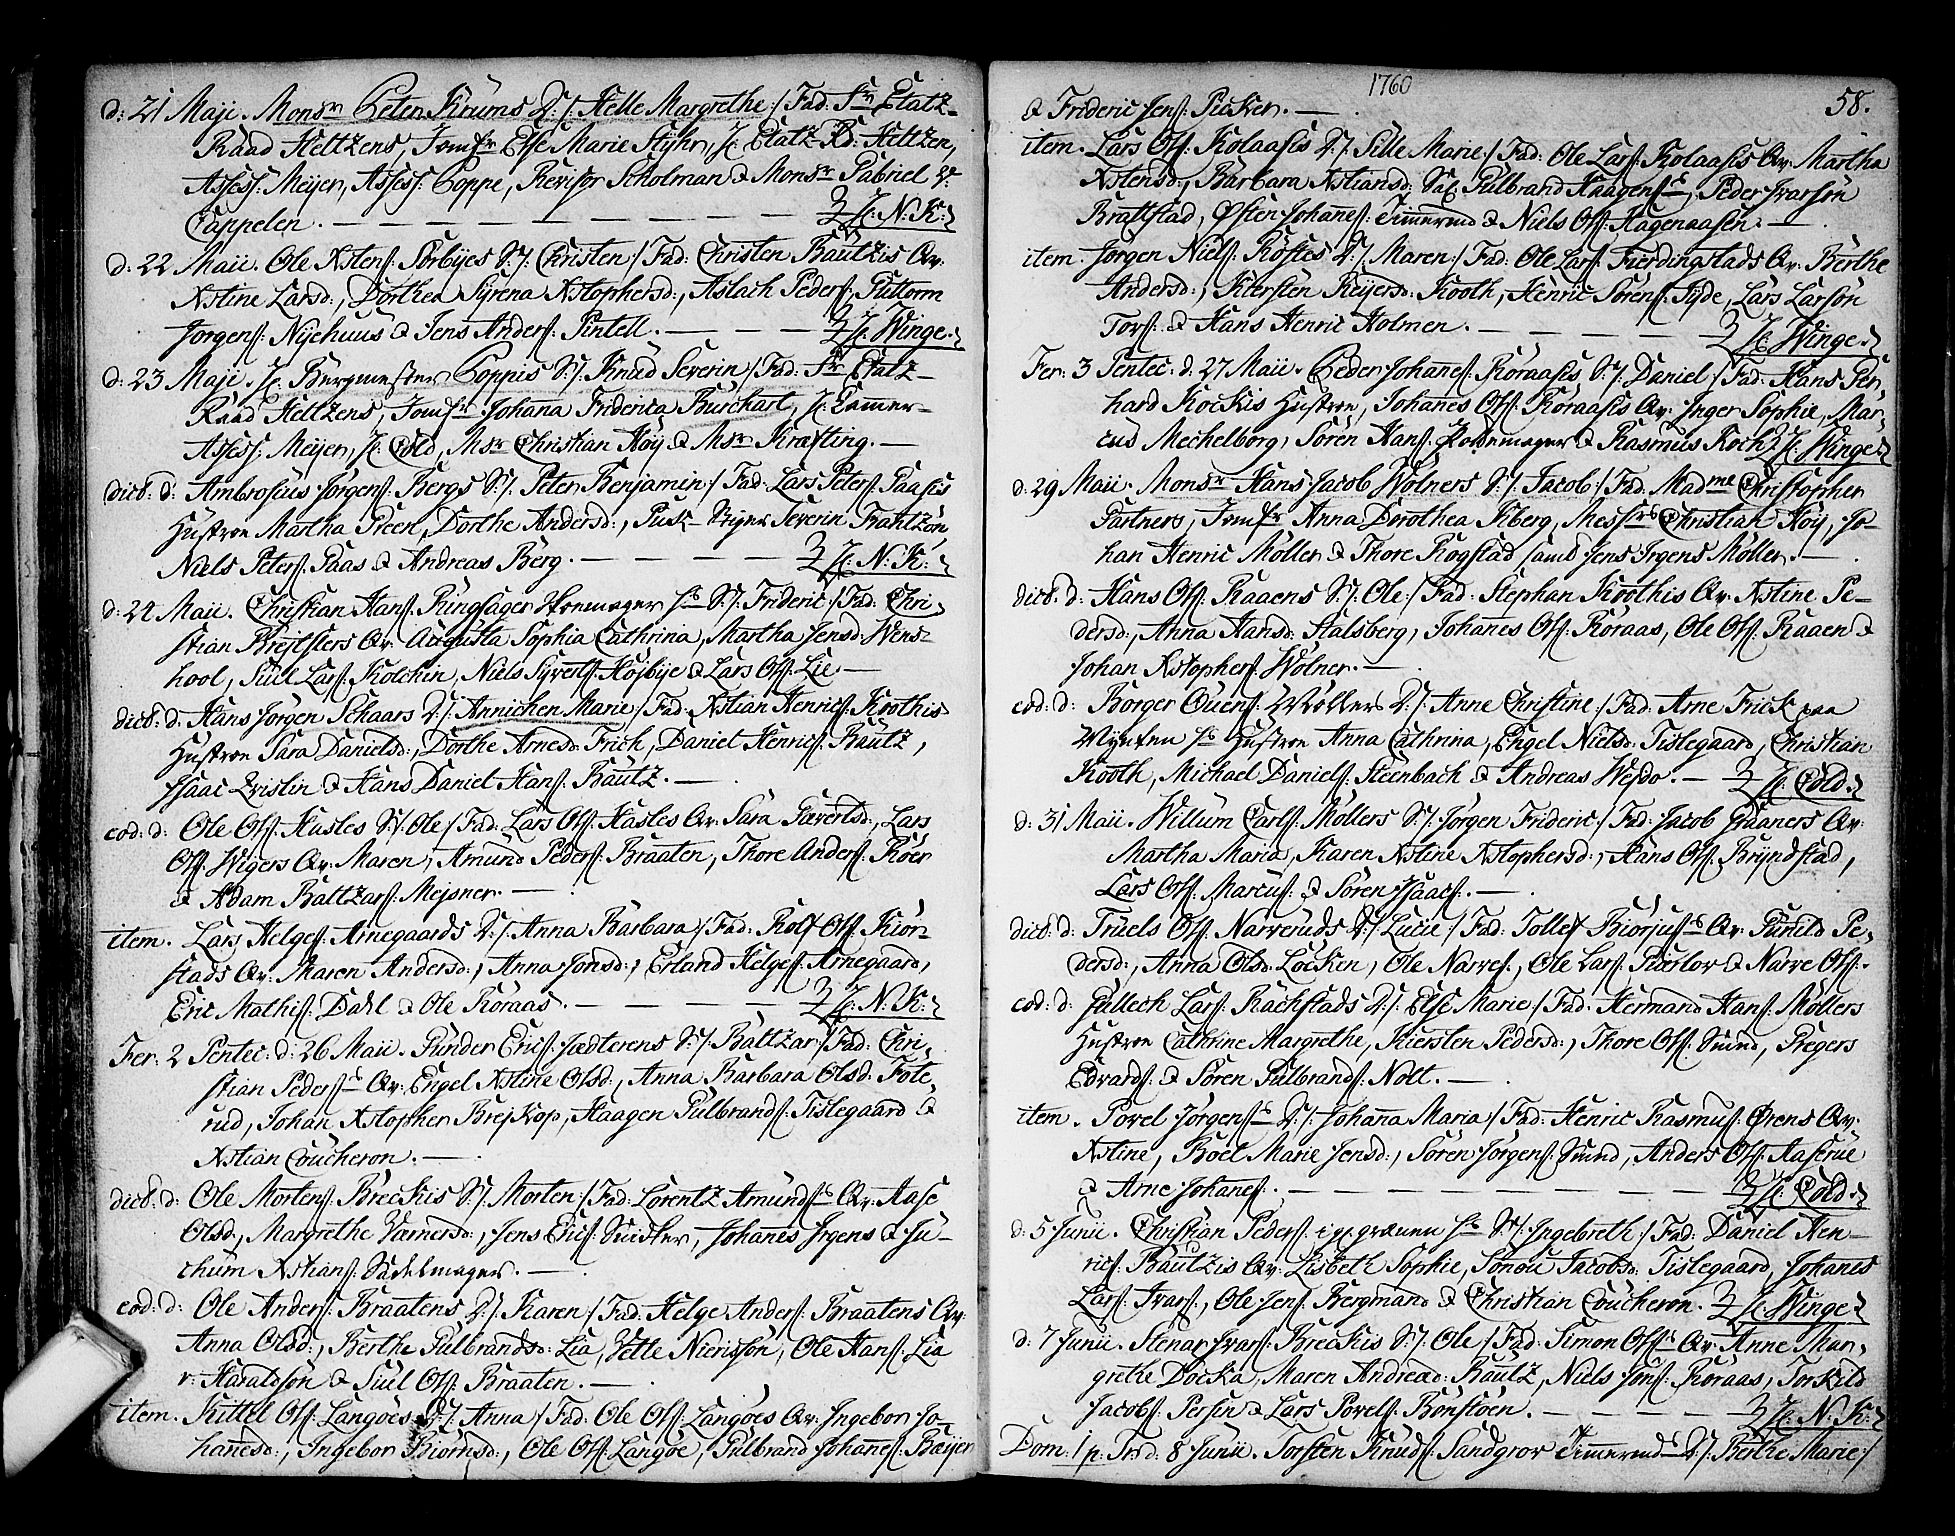 d: 21 Maji. Monsr Peter Krums D:/: Helle Margrethe:/ Fad: Fr Etatz-
Raad Heltzens, Jomfr Else Marie Styhr, H: Etatz-Rd: Heltzen,
Assess: Meyer, Assess: Poppe, Revisor Scholman & Monsr Gabriel v:
Cappelen. — — — H: N: K:
d: 22 Maii. Ole Xstens: Sörbyes S:/: Christen:/ Fad: Christen Bautzis Qv:
Xstine Larsd:, Dorthea Syrena Xstophersd:, Aslach Peders: Guttorm
Jorgens: Nyehuus & Jens Anders: Pintell. — — H: Winge.
d: 23 Maji. H: Burgmester Poppis S:/: Knud Severin:/ Fad: Fr Etatz-
Raad Heltzens, Jomfr Johana Friderica Burchart, H: Cammer-
Assess: Meyer, H: Cold, Msr Christian Höy & Msr Kræfting. —
dict: d: Ambrosius Jörgens: Bergs S:/: Peter Benjamin:/ Fad: Lars Peters: Paasis
Hustroe Martha Green, Dorthe Andersd:, Severin Frantzön
Niels Peters: Paas & Andreas Berg. — — — H: N: K:
d: 24 Maii. Christian Hans: Ringsager S:/: Frideric:/ Fad: Chri-
stian Brejtsters Qv: Augusta Sophia Cathrina, Martha Jensd: Wens-
hool, Siul Lars: Kolchin, Niels Syverts: Höjbye & Lars Ols: Lie. —
dict: d: Hans Jörgen Schaars D:/: Annichen Marie:/ Fad: Xstian Henrics: Koothis
Hustroe Sara Danielsd:, Dorthe Arnesd: Frich, Daniel Henrics: Bautz,
Isaac Qvislin & Hans Daniel Hans: Bautz. —
eod: d: Ole Ols: Hasles S:/: Ole:/ Fad: Lars Ols: Hasles Qv: Sara Sivertsd:, Lars
Ols: Wigers Qv: Maren, Amund Peders: Braaten, Thore Anders: Röer
& Adam Baltzars: Mejsner. —
item. Lars Helges: Arnegaards D:/: Anna Barbara:/ Fad: Rolf Ols: Kiör-
stads Qv: Maren Andersd:, Anna Jonsd:, Erland Helges: Arnegaard,
Eric Mathis: Dahl & Ole Röraas. — — — H: N: K:
Fer: 2 Pentec: d: 26 Maii. Gunder Erics: Jædterens S:/: Baltzar:/ Fad: Chri-
stian Peders: Qv: Engel Xstine Olsd:, Anna Barbara Olsd: Fote-
rud, Johan Xstopher Brejkop, Haagen Gulbrands: Tislegaard &
Xstian Coucheron. —
dict: d: Ole Mortens: Breckis S:/: Morten:/ Fad: Lorentz Amunds: Qv: Aase
Olsd:, Margrethe Værnersd:, Jens Erics: Snidker, Johanes Jrgens & Ju-
chum Xstians: Sadelmager. —
eod: d: Ole Anders: Braatens D:/: Karen:/ Fad: Helge Anders: Braatens Qv:
Anna Olsd:, Berthe Gulbrandsd: Lia, Vetle Nierisön, Ole Hans: Lia
v: Haraldsön & Siul Ols: Braaten. —
item. Kittel Ols: Langöes D:/: Anna:/ Fad: Ole Ols: Langöes Qv: Ingebor Jo-
hanesd:, Ingebor Biörnsd:, Ole Ols: Langöe, Gulbrand Johanes: Bæijer
1760
58.
& Frideric Jens: Picker. —
item. Lars Ols: Kolaasis D:/: Sille Marie:/ Fad: Ole Lars: Kolaasis Qv: Martha
Xstensd:, Barbara Xstiansd: Gulbrand Haagens:, Peder Ivarsön
Brattstad, Östen Johanes: Timermd & Niels Ols: Hagenaasen. —
item. Jørgen Niels: Röstes D:/: Maren:/ Fad: Ole Lars: Fierdingstads Qv: Berthe
Andersd:, Kiersten Reyersd: Kooth, Henric Sörens: Syde, Lars Larsön
Tors: & Hans Henric Holmen. — — — H: Winge.
Fer: 3 Pentec: d: 27 Maii. Peder Johanes: Röraasis S:/: Daniel:/ Fad: Hans Ger-
hard Kockis Hustroe, Johanes Ols: Röraasis Qv: Inger Sophie, Mar-
cus Mechelborg, Sören Hans: Pottemager & Rasmus Koch. H: Winge.
d: 29 Maii. Monsr Hans Jacob Wölners S:/: Jacob:/ Fad: Madme Christopher
Partners, Jomfr Anna Dorothea Fiberg, Messrs Christian Höy, Jo-
han Henric Möller & Thore Rogstad samt Jens Jrgens Möller. —
dict: d: Hans Ols: Raaens S:/: Ole:/ Fad: Stephan Koothis Qv: Xstine Pe-
dersd:, Anna Hansd: Halsberg, Johanes Ols: Röraas, Ole Ols: Raaen &
Johan Xstophers: Wölner. —
eod: d: Borger Ouens: Möllers D:/: Anne Christine:/ Fad: Arne Frick paa
Mynten Hustroe Anna Cathrina, Engel Nielsd: Tislegaard, Christian
Kooth, Michael Daniels: Steenbach & Andreas Wesdo. — H: Cold.
d: 31 Maii. Willum Carls: Möllers S:/: Jörgen Frideric:/ Fad: Jacob Graaners Qv:
Martha Maria, Karen Xstine Xstophersd:, Hans Ols: Bryndstad,
Lars Ols: Marcus: & Sören Isaacs: —
dict: d: Truels Ols: Narveruds D:/: Lucie:/ Fad: Tollef Biörjus: Qv: Gunild Pe-
dersd:, Anna Olsd: Löcken, Ole Narves:, Ole Lars: Kiærlov & Narve Ols:
eod: d: Gullech Lars: Rachstads D:/: Else Marie:/ Fad: Hermand Hans: Möllers
Hustroe Cathrine Margrethe, Kiersten Pedersd:, Thore Ols: Smed, Gregers
Edvards: & Sören Gulbrands: Nolt. —
item. Povel Jörgens: D:/: Johana Maria:/ Fad: Henric Rasmus: Ørens Qv:
Xstine, Boel Marie Jensd:, Sören Jörgens: Smed, Anders Ols: Aaserue
& Arne Johanes: — — — — H: Cold.
d: 5 Junii. Christian Peders: S:/: Ingebreth:/ Fad: Daniel Hen-
rics: Bautzis Qv: Lisbeth Sophie, Sonou Jacobsd: Tislegaard, Johanes
Lars: Ivars:, Ole Jens: Bergmand & Christian Coucheron. H: Winge.
d: 7 Junii. Stenar Ivars: Breckis S:/: Ole:/ Fad: Simon Ols: Qv: Anne Mar-
grethe Docka, Maren Andread: Bautz, Niels Jons: Röraas, Torkild
Jacobs: Persin & Lars Povels: Bönstöen. — — — H: N: K:
Dom: 1 p: Trd: 8 Junii. Torsten Knuds: Sandgrov Timermd D:/: Berthe Marie:/